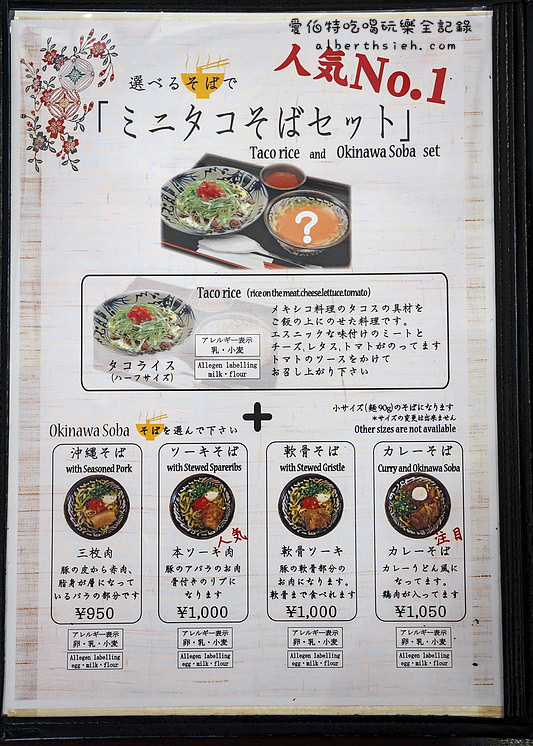 愛伯特吃喝玩樂全記錄
alberthsieh.com
人気No.1
選べるそばで
「ミニタコそばセット」
Taco rice and Okinawa Soba set
?
Taco rice (rice on the meat.cheese.lettuce.tomato)
メキシコ料理のタコスの具材を
ご飯の上にのせた料理です。
エスニックな味付けのミートと
チーズ,レタス,トマトがのってます
トマトのソースをかけて
お召し上がり下さい
アレルギー表示
乳・小麦
Allegen labelling
milk・flour
タコライス
(ハーフサイズ)
+
小サイズ(麺90g)のそばになります
*サイズの変更は出来ません
Other sizes are not available
Okinawa Soba そばを選んで下さい
沖縄そば
with Seasoned Pork
三枚肉
豚の皮から赤肉、
脂身が層になって
いるバラの部分です
¥950
アレルギー表示
卵・乳・小麦
Allegen labelling
egg・milk・flour
ソーキそば
with Stewed Spareribs
人気
本ソーキ肉
豚のアバラのお肉
骨付きのリブに
なります
¥1,000
アレルギー表示
卵・乳・小麦
Allegen labelling
egg・milk・flour
軟骨そば
with Stewed Gristle
軟骨ソーキ
豚の軟骨部分の
お肉になります。
軟骨まで食べれます
¥1,000
アレルギー表示
卵・乳・小麦
Allegen labelling
egg・milk・flour
カレーそば
Curry and Okinawa Soba
注目
カレーそば
カレーうどん風に
なってます。
鶏肉が入ってます
¥1,050
アレルギー表示
卵・乳・小麦
Allegen labelling
egg・milk・flour